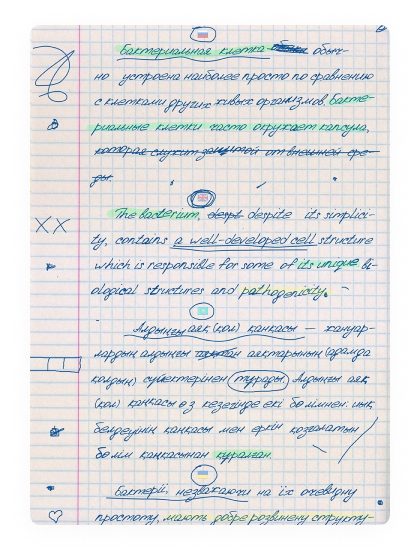 Бактериальная клетка обыч-
но устроена наиболее просто по сравнению
с клетками других живых организмов. Бакте-
риальные клетки часто окружает капсула,
которая служит защитой от внешней сре-
ды.
The bacterium, despt despite its simplici-
ty, contains a well-developed cell structure
which is responsible for some of its unique bi-
ological structures and pathogenicity.
Алдыңғы аяқ (қол) қаңқасы — жануар-
лардың алдыңғы аяқтарының (адамда
қолдың) сүйектерінен тұрады. Алдыңғы аяқ
(қол) қаңқасы өз кезегінде екі бөлімнен: иық
белдеуінің қаңқасы мен еркін қозғалатын
бөлім қаңқасынан құралған.
Бактерії, незважаючи на їх очевидну
простоту, мають добре розвинену структу-